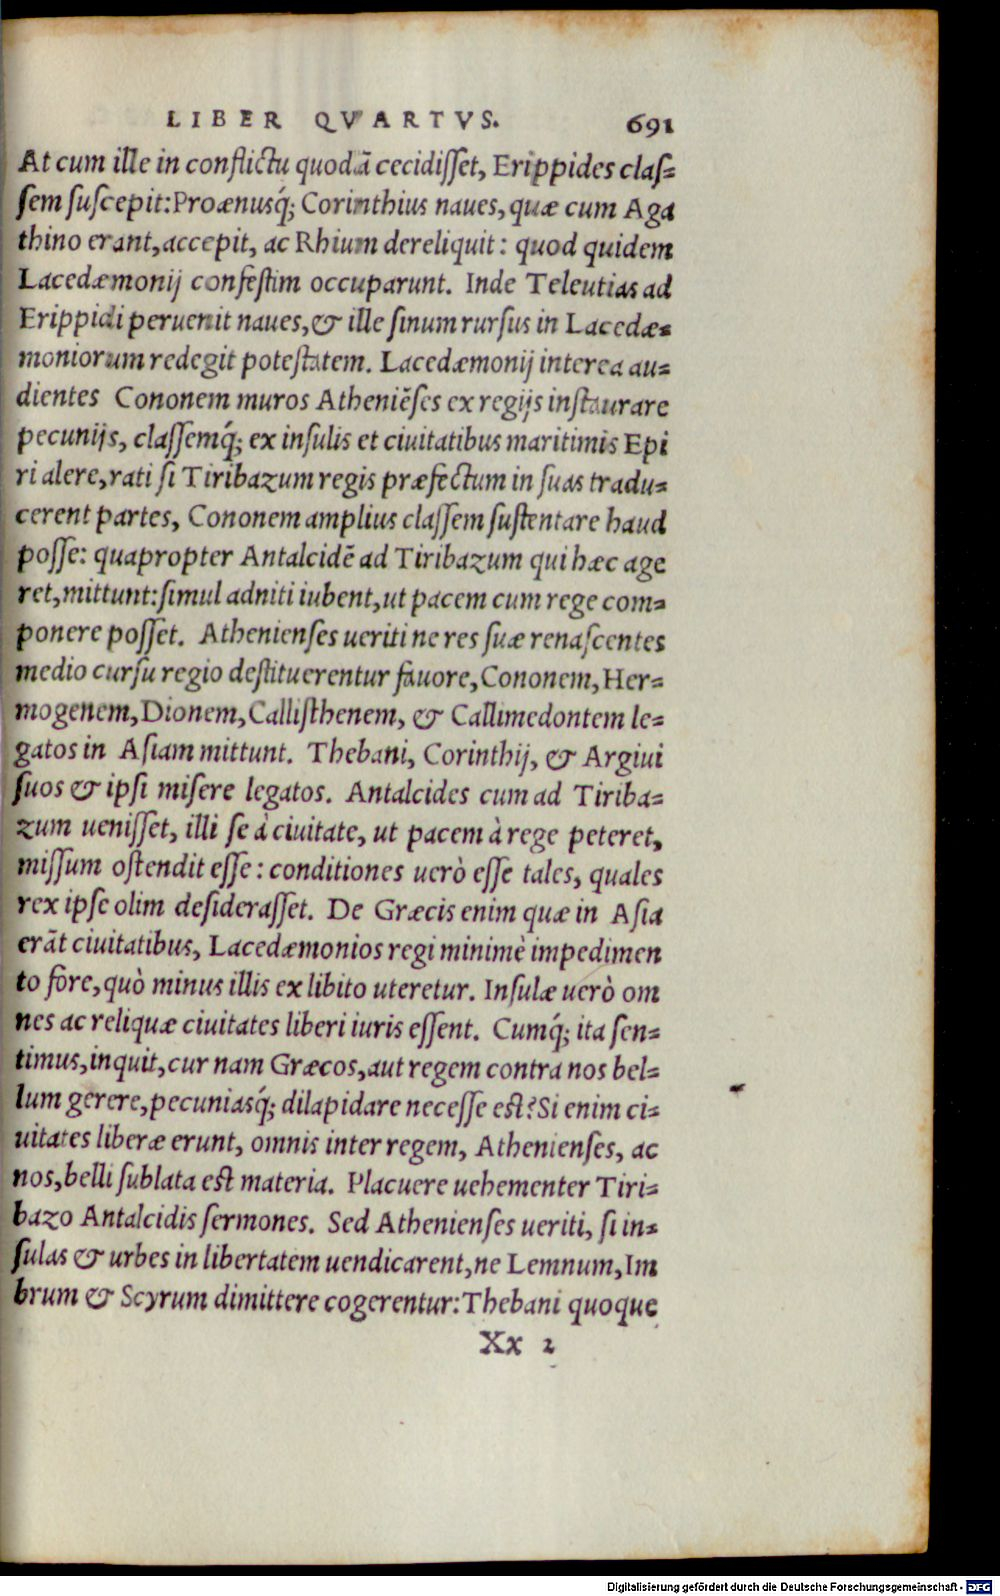 LIBER QVARTVS. 691
At cum ille in conflictu quodã cecidisset, Erippides clas-
sem suscepit: Proænusq́; Corinthius naues, quæ cum Aga
thino erant, accepit, ac Rhium dereliquit: quod quidem
Lacedæmonij confestim occuparunt. Inde Teleutias ad
Erippidi peruenit naues, & ille sinum rursus in Lacedæ-
moniorum redegit potestatem. Lacedæmonij interea au-
dientes Cononem muros Atheniẽses ex regijs instaurare
pecunijs, classemq́; ex insulis et ciuitatibus maritimis Epi
ri alere, rati si Tiribazum regis præfectum in suas tradu-
cerent partes, Cononem amplius classem sustentare haud
posse: quapropter Antalcidẽ ad Tiribazum qui hæc age
ret, mittunt: simul adniti iubent, ut pacem cum rege com-
ponere posset. Athenienses ueriti ne res suæ renascentes
medio cursu regio destituerentur fauore, Cononem, Her-
mogenem, Dionem, Callisthenem, & Callimedontem le-
gatos in Asiam mittunt. Thebani, Corinthij, & Argiui
suos & ipsi misere legatos. Antalcides cum ad Tiriba-
zum uenisset, illi se à ciuitate, ut pacem à rege peteret,
missum ostendit esse: conditiones uerò esse tales, quales
rex ipse olim desiderasset. De Græcis enim quæ in Asia
erãt ciuitatibus, Lacedæmonios regi minimè impedimen
to fore, quò minus illis ex libito uteretur. Insulæ uerò om
nes ac reliquæ ciuitates liberi iuris essent. Cumq́; ita sen-
timus, inquit, cur nam Græcos, aut regem contra nos bel-
lum gerere, pecuniasq́; dilapidare necesse est? Si enim ci-
uitates liberæ erunt, omnis inter regem, Athenienses, ac
nos, belli sublata est materia. Placuere uehementer Tiri-
bazo Antalcidis sermones. Sed Athenienses ueriti, si in-
sulas & urbes in libertatem uendicarent, ne Lemnum, Im
brum & Scyrum dimittere cogerentur: Thebani quoque
Xx 2
Digitalisierung gefördert durch die Deutsche Forschungsgemeinschaft - DFG